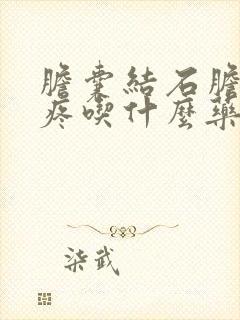 膽囊結石膽
疼喫什麼藥
柒武